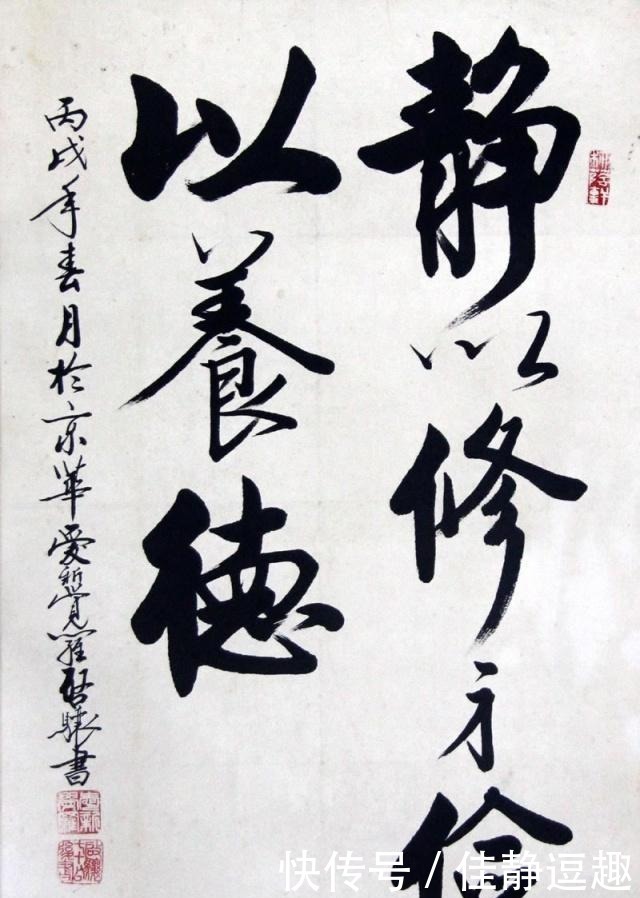 静以修身儉
以養德
丙戌年春月於京華愛新覺羅啟驤書
快传号/佳静逗趣